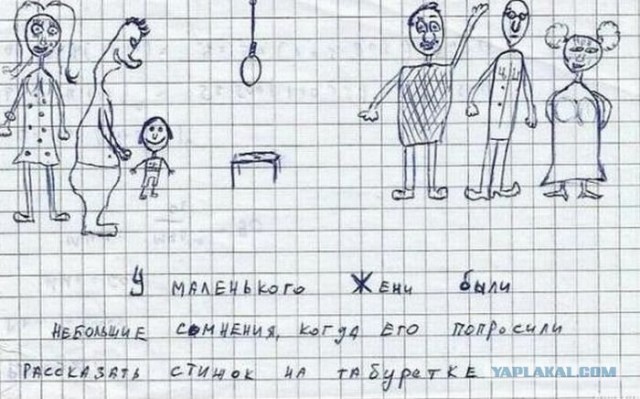 У маленького Жени были
небольшие сомнения, когда его попросили
рассказать стишок на табуретке
YAPLAKAL.COM